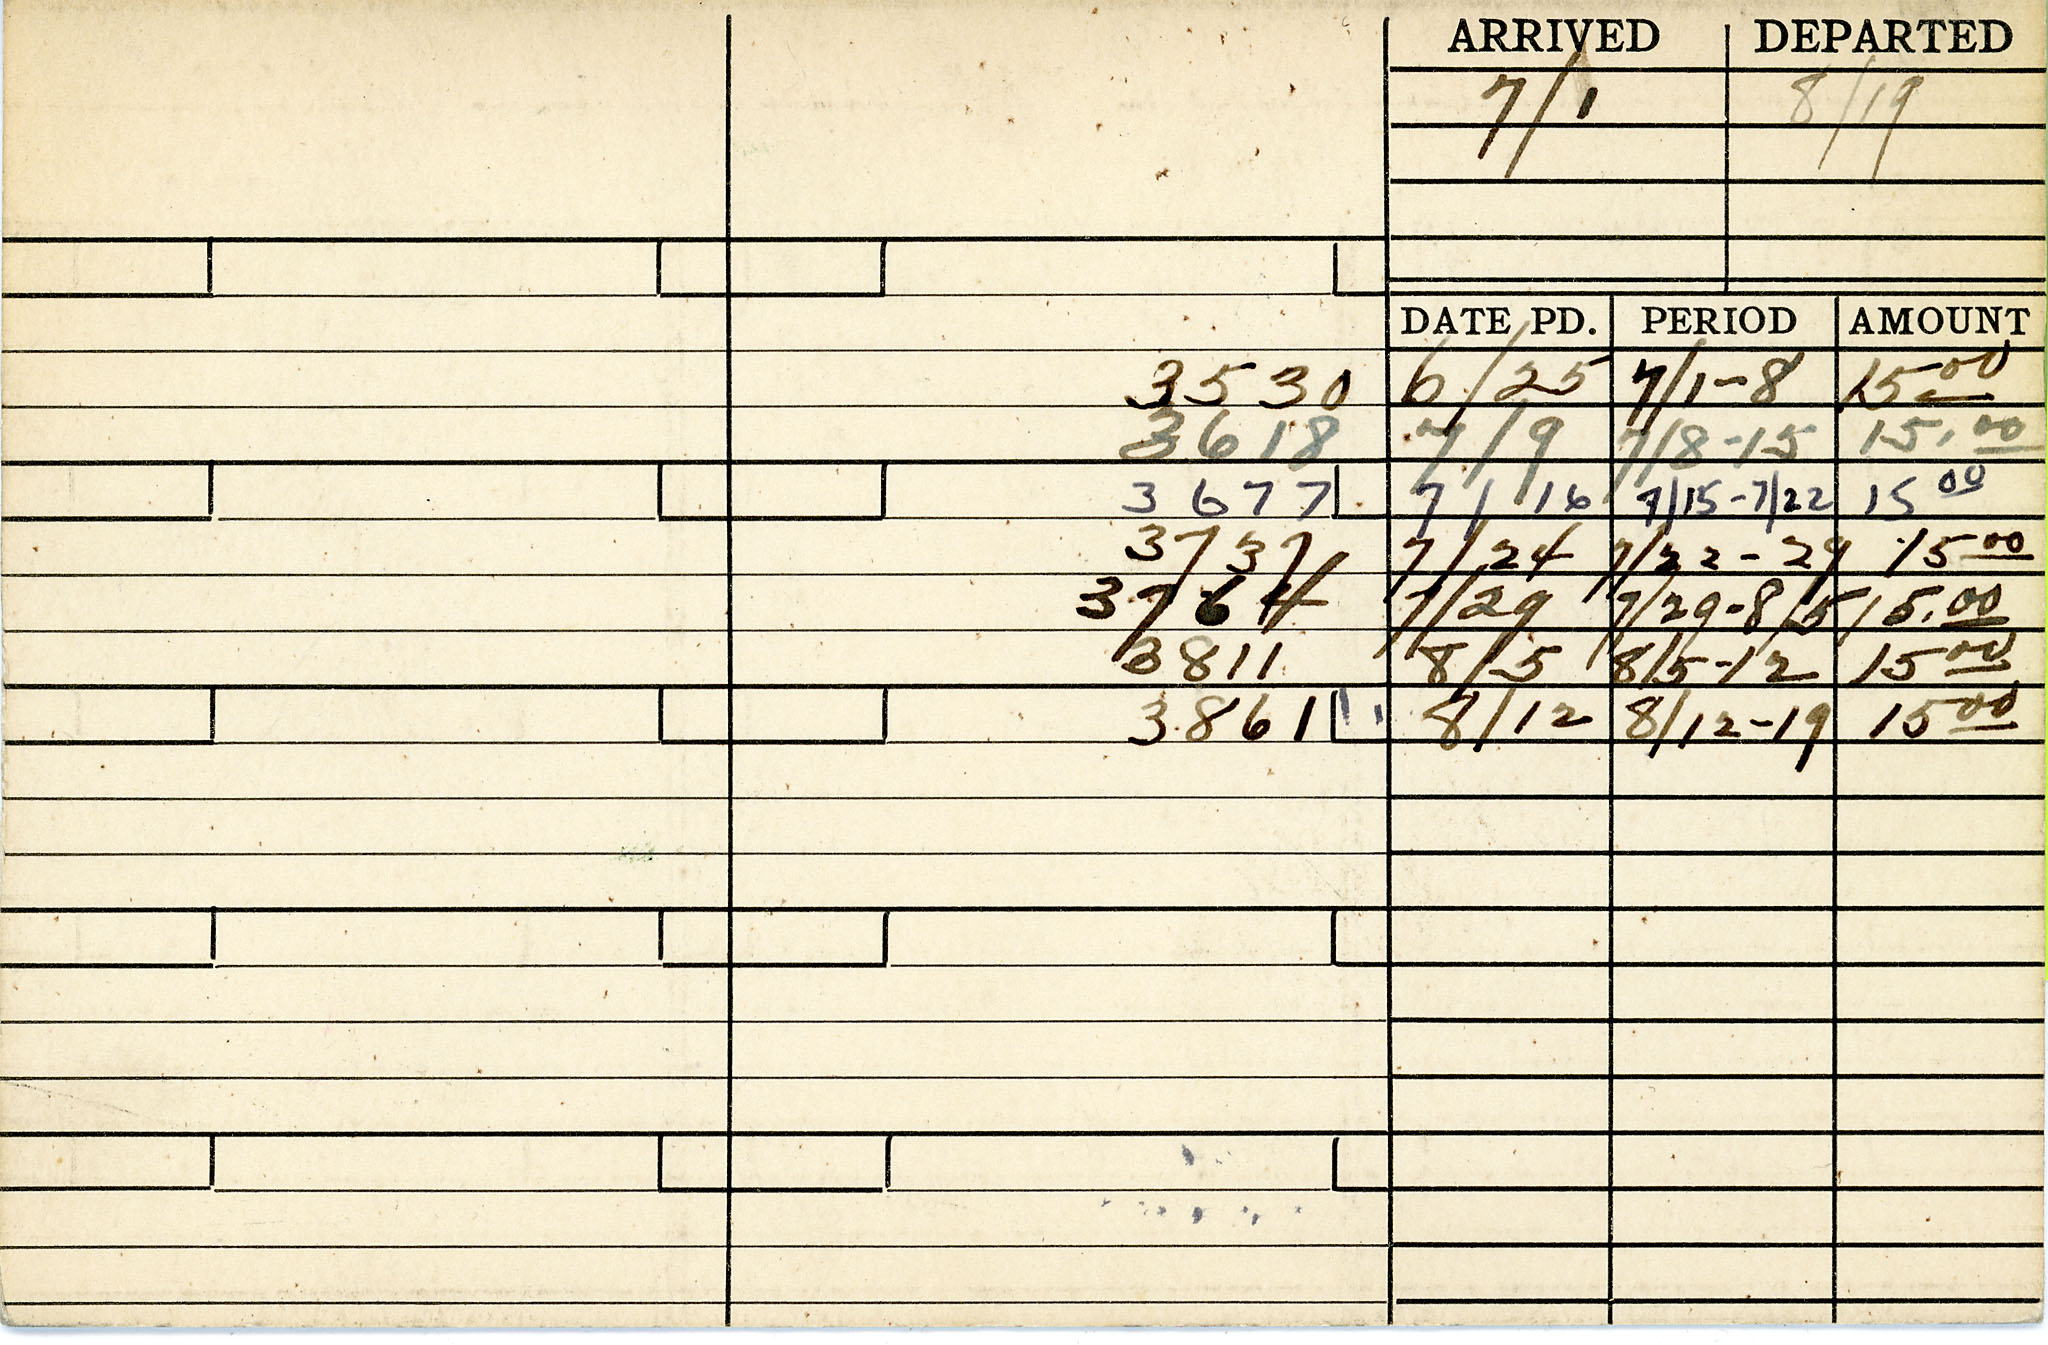 ARRIVED DEPARTED
7/1 8/19
DATE PD. PERIOD AMOUNT
3530 6/25 7/1-8 15.00
3618 7/9 7/8-15 15.00
3677 7/16 7/15-7/22 15 00
3737 7/24 7/22-29 15 00
3764 7/29 7/29-8/5 15.00
3811 8/5 8/5-12 15 00
3861 8/12 8/12-19 15 00